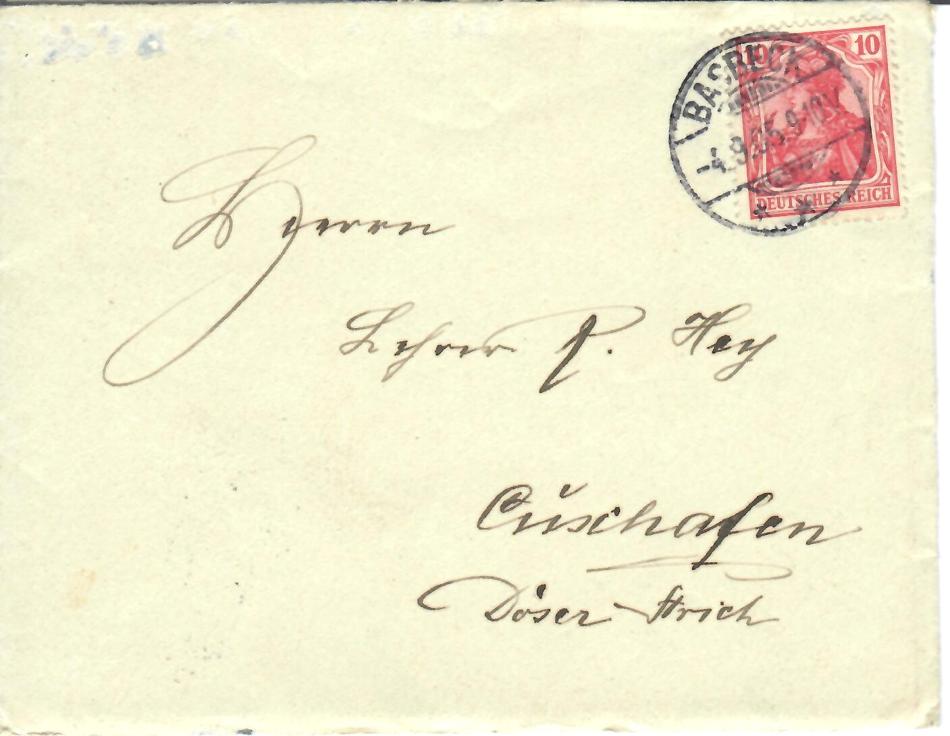 10 10
BASBECK
-4.9.05.9-10V.
* * *
DEUTSCHES REICH
Herrn
Lehrer P. Hey
Cuxhafen
Döser Strich